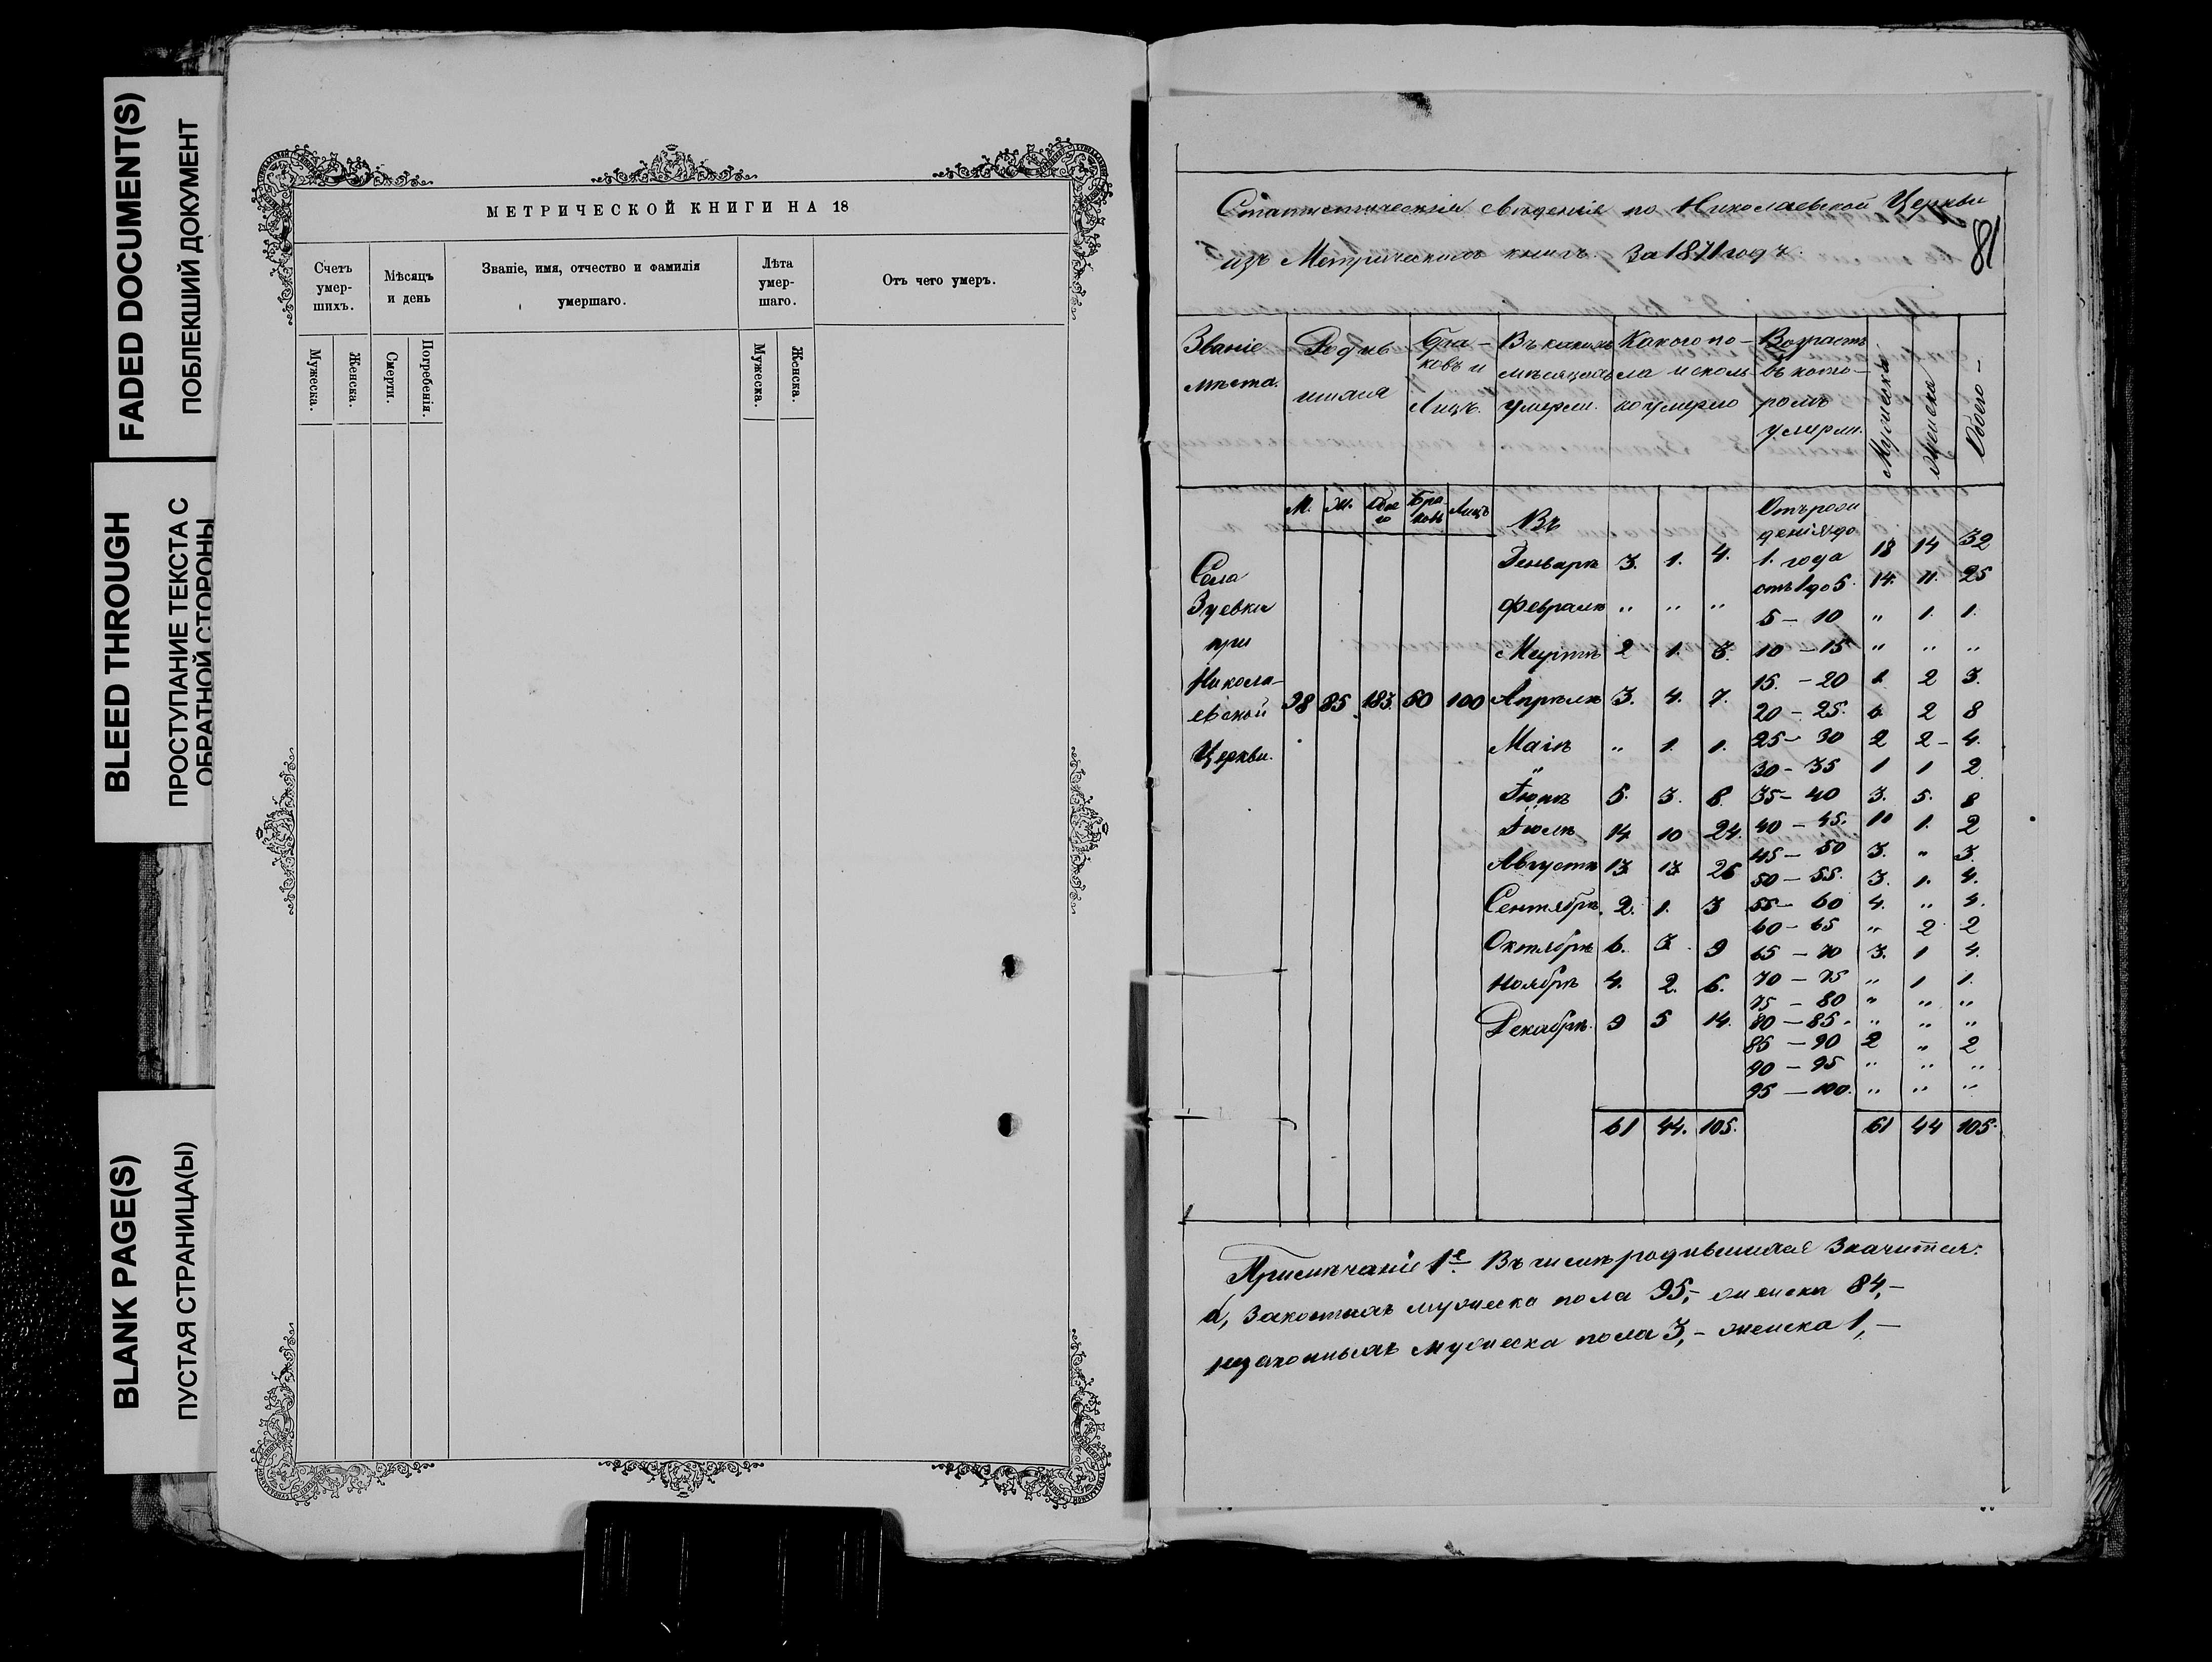 FADED DOCUMENT(S)
ПОБЛЕКШИЙ ДОКУМЕНТ
BLEED THROUGH
ПРОСТУПАНИЕ ТЕКСТА С
ОБРАТНОЙ СТОРОНЫ
BLANK PAGE(S)
ПУСТАЯ СТРАНИЦА(Ы)
МЕТРИЧЕСКОЙ КНИГИ НА 18
Счетъ умер-шихъ.
Мѣсяцъ и день
Званіе, имя, отчество и фамилія умершаго.
Лѣта умер-шаго.
Отъ чего умеръ.
Мужеска.
Женска.
Смерти.
Погребенія.
Мужеска.
Женска.
Статистическія свѣденія по Николаевской Церкви
изъ Метрическихъ книгъ. За 1871 годъ.
81
Званіе мѣста.
Родив шихся
Бра-ковъ и Лицъ.
Въ какихъ мѣсяцахъ умерли.
Какого по-ла и сколь ко умерло
Возрастъ въ кото-ромъ умерли.
Мужеска.
Женска
Обоего-
М. Ж. Обое го Бра ковъ Лицъ
Села
Зуевки
при
Никола-
евской
Церкви.
98 85 183. 50 100
Въ
Генварѣ 3. 1. 4.
Февралѣ " " "
Мартѣ 2 1. 3.
Апрѣлѣ 3. 4. 7.
Маіѣ " 1. 1.
Іюнѣ 5. 3. 8.
Іюлѣ 14. 10 24.
Августѣ 13 13 26
Сентябрѣ. 2. 1. 3
Октябрѣ 6. 3. 9
Ноябрѣ 4. 2. 6.
Декабрѣ. 9 5 14.
61 44. 105.
Отъ рож
денія до
1. года 18 14 32
отъ 1 до 5. 14. 11. 25
5 - 10 " 1. 1.
10 - 15 " " "
15. - 20 1. 2 3.
20 - 25. 6. 2 8
25 - 30 2 2 - 4.
30 - 35 1 1 2
35 - 40 3. 5. 8
40 - 45. 1. 1. 2
45 - 50 3. " 3.
50 - 55. 3. 1. 4.
55 - 60 4. " 4.
60 - 65 " 2 2
65 - 70 3. 1 4.
70 - 75 " 1 1.
75 - 80 " " "
80 - 85. " " "
85 - 90 2 " 2
90 - 95 " " "
95 - 100. " " "
61 44 105.
Примѣчаніе 1е. Въ числѣ родившихся значится:
а, Законныхъ мужеска пола 95,- женска 84,-
незаконныхъ мужеска пола 3,- женска 1,-